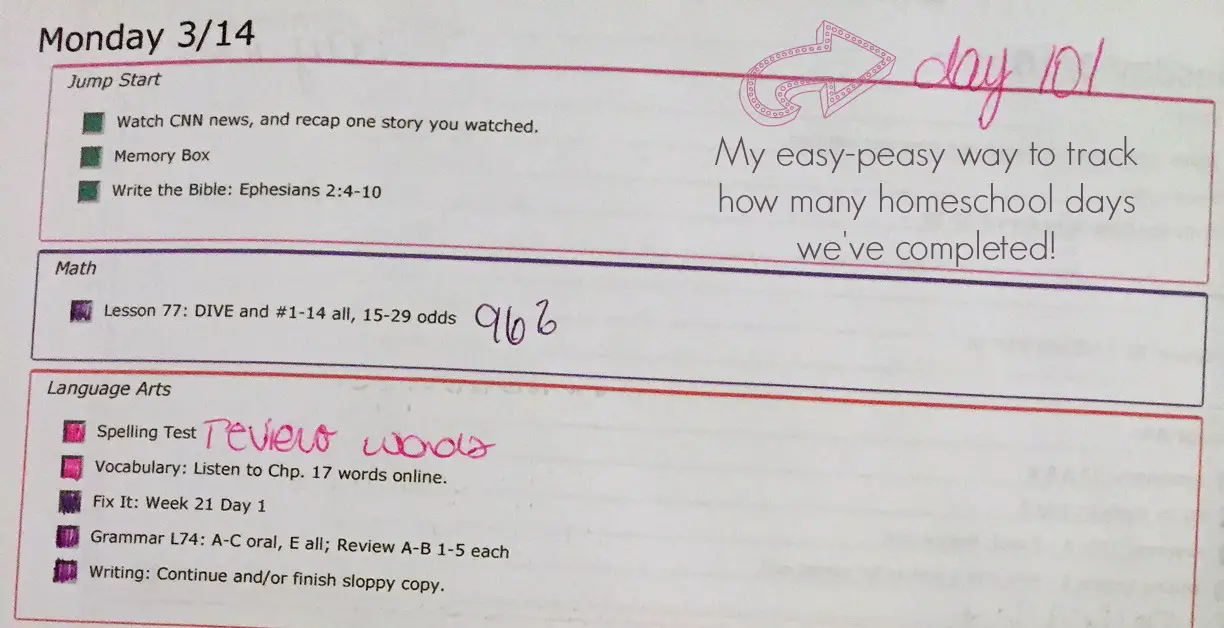 Monday 3/14
day 101
Jump Start
Watch CNN news, and recap one story you watched.
Memory Box
Write the Bible: Ephesians 2:4-10
My easy-peasy way to track
how many homeschool days
we've completed!
Math
Lesson 77: DIVE and #1-14 all, 15-29 odds
Language Arts
Spelling Test review words
Vocabulary: Listen to Chp. 17 words online.
Fix It: Week 21 Day 1
Grammar L74: A-C oral, E all; Review A-B 1-5 each
Writing: Continue and/or finish sloppy copy.